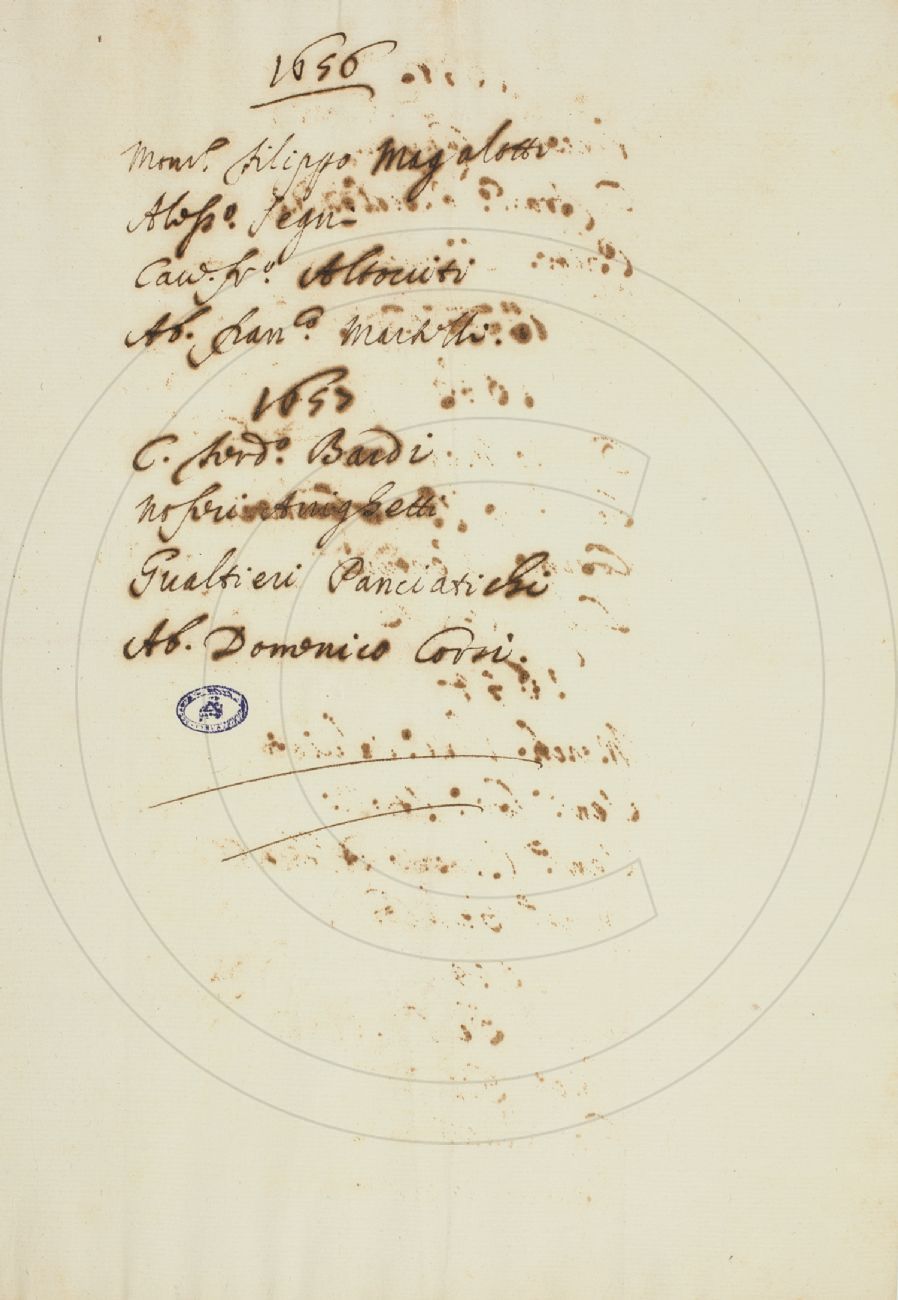 1656
Mons.r Filippo Magalotti
Aless.o Segni
Cav.e Fr.o Altoviti
Ab. Fran.co Martelli.
1653
C. Ferd.o Bardi
Noferi Arrighetti
Gualtieri Panciatichi
Ab. Domenico Corsi.